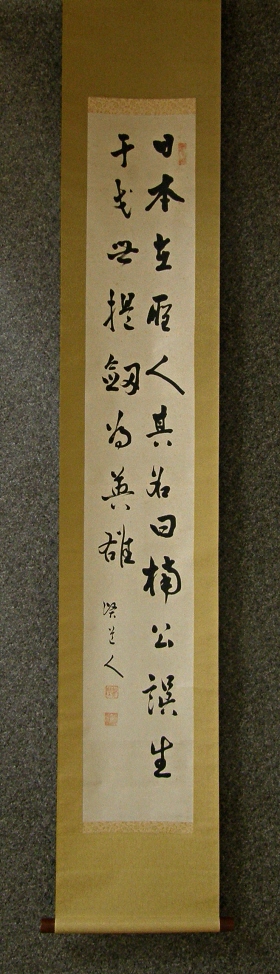 日本有聖人其名曰楠公誤生
干戈世提劔為英雄
道人